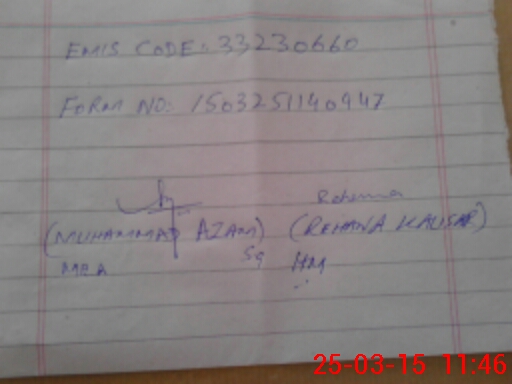 EMIS CODE: 33230660
FORM NO: 1503251140947
Rehana
(MUHAMMAD AZAM) (REHANA KAUSAR)
MEA Sg HM
25-03-15 11:46